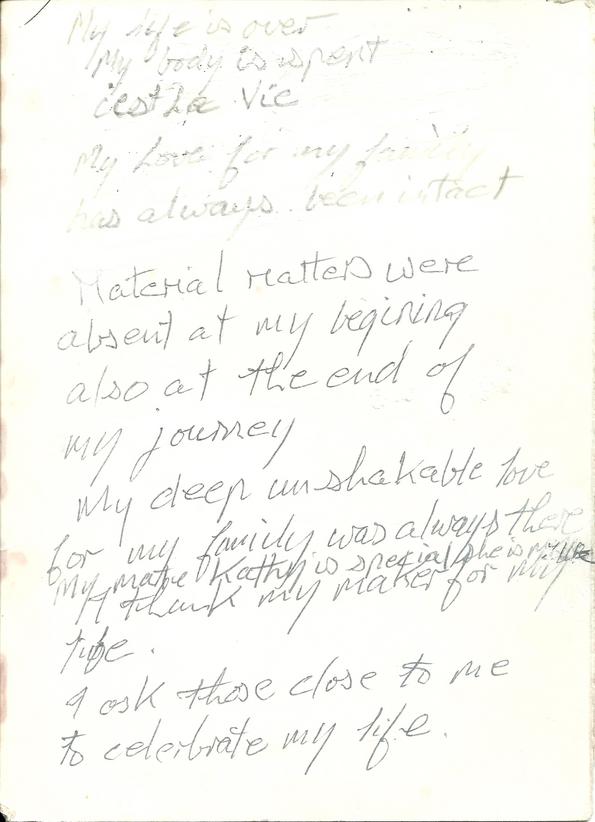 My life is over
My body is spent
c'est La Vie
My Love for my family
has always been intact
Material matters were
absent at my begining
also at the end of
my journey
My deep unshakable love
for my family was always there
My mate Kathy is special she is my life
I thank my maker for my
life.
I ask those close to me
to celerbrate my life.